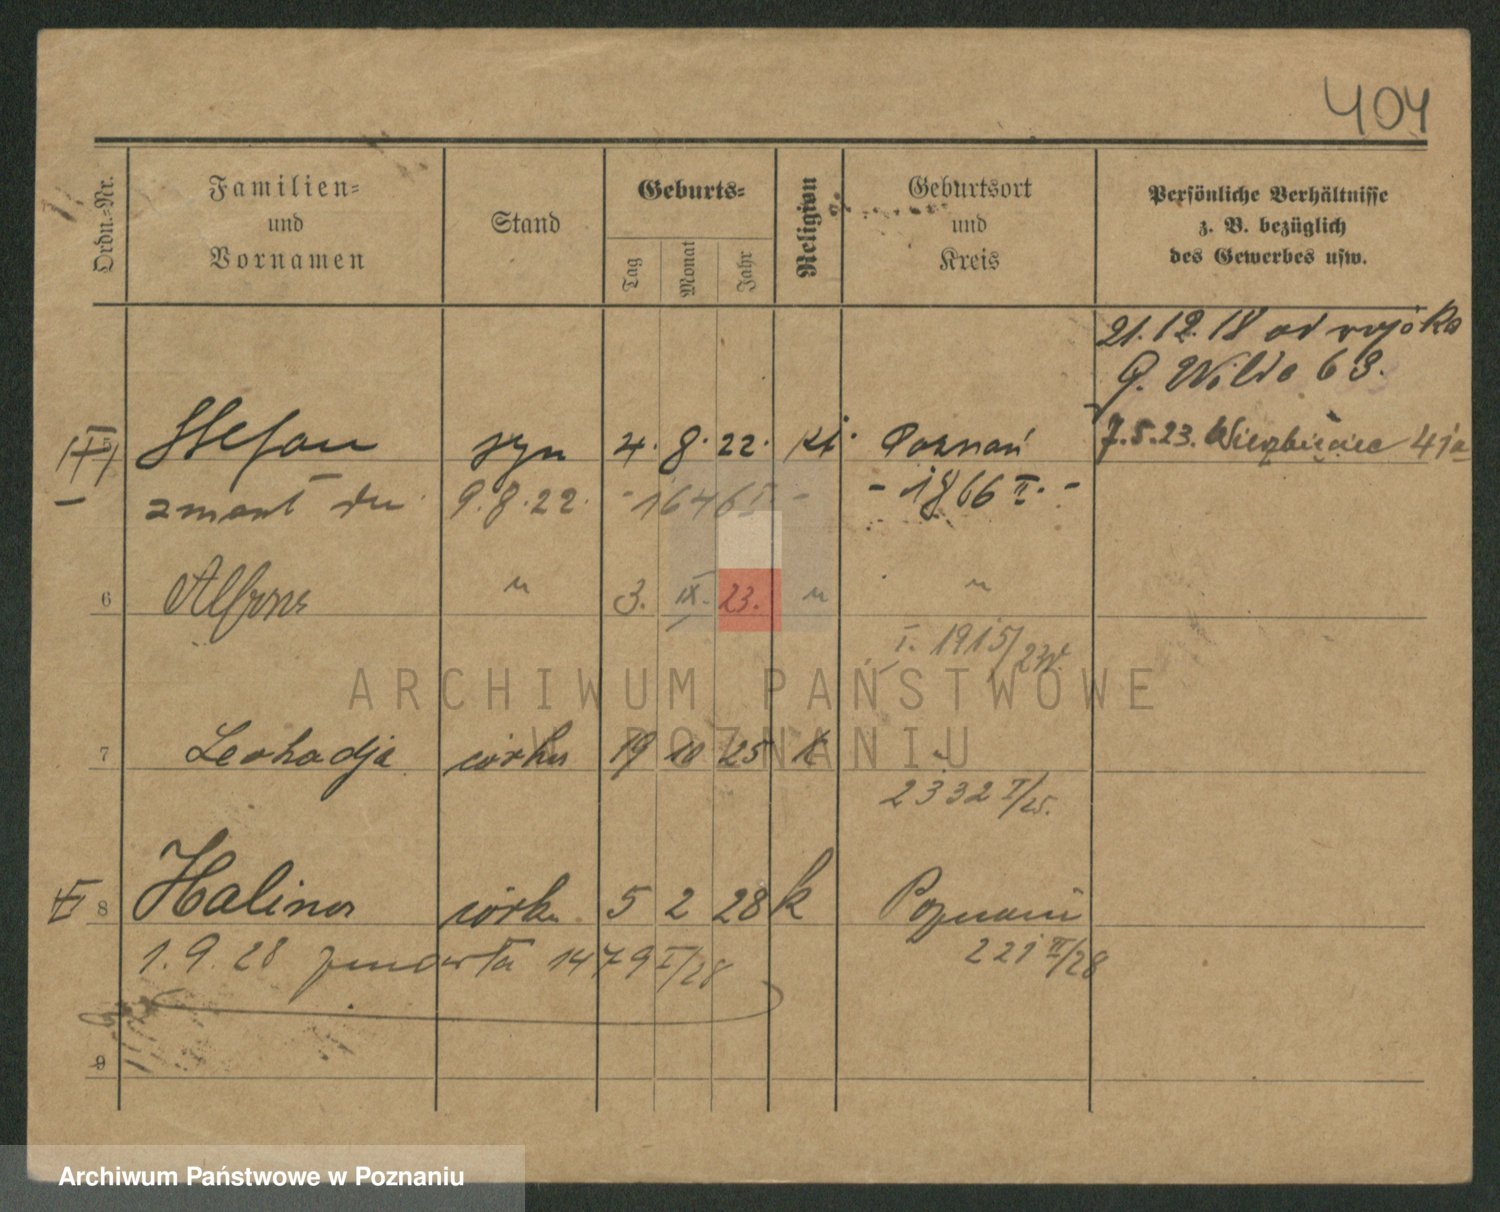 404
Ordn.-Nr.
Familien-
und
Vornamen
Stand
Geburts-
Tag
Monat
Jahr
Religion
Geburtsort
und
Kreis
Persönliche Verhältnisse
z. B. bezüglich
des Gewerbes usw.
21.12.18 od wojska
G. Wilda 63.
7.5.23. Wierzbięcice 41a
5 Stefan syn 4. 8. 22. kt. Poznań
zmarł dn. 9.8.22. - 1646 I - - 1866 II. -
6 Alfons " 3. IX. 23. " "
I. 1915/23
7 Leokadja córka 19 10 25 k "
2332 I/25.
8 Halina córka 5 2 28 k Poznań
1.9.28 zmarła 1479 I/28 221 II/28
9
ARCHIWUM PAŃSTWOWE
W POZNANIU
Archiwum Państwowe w Poznaniu